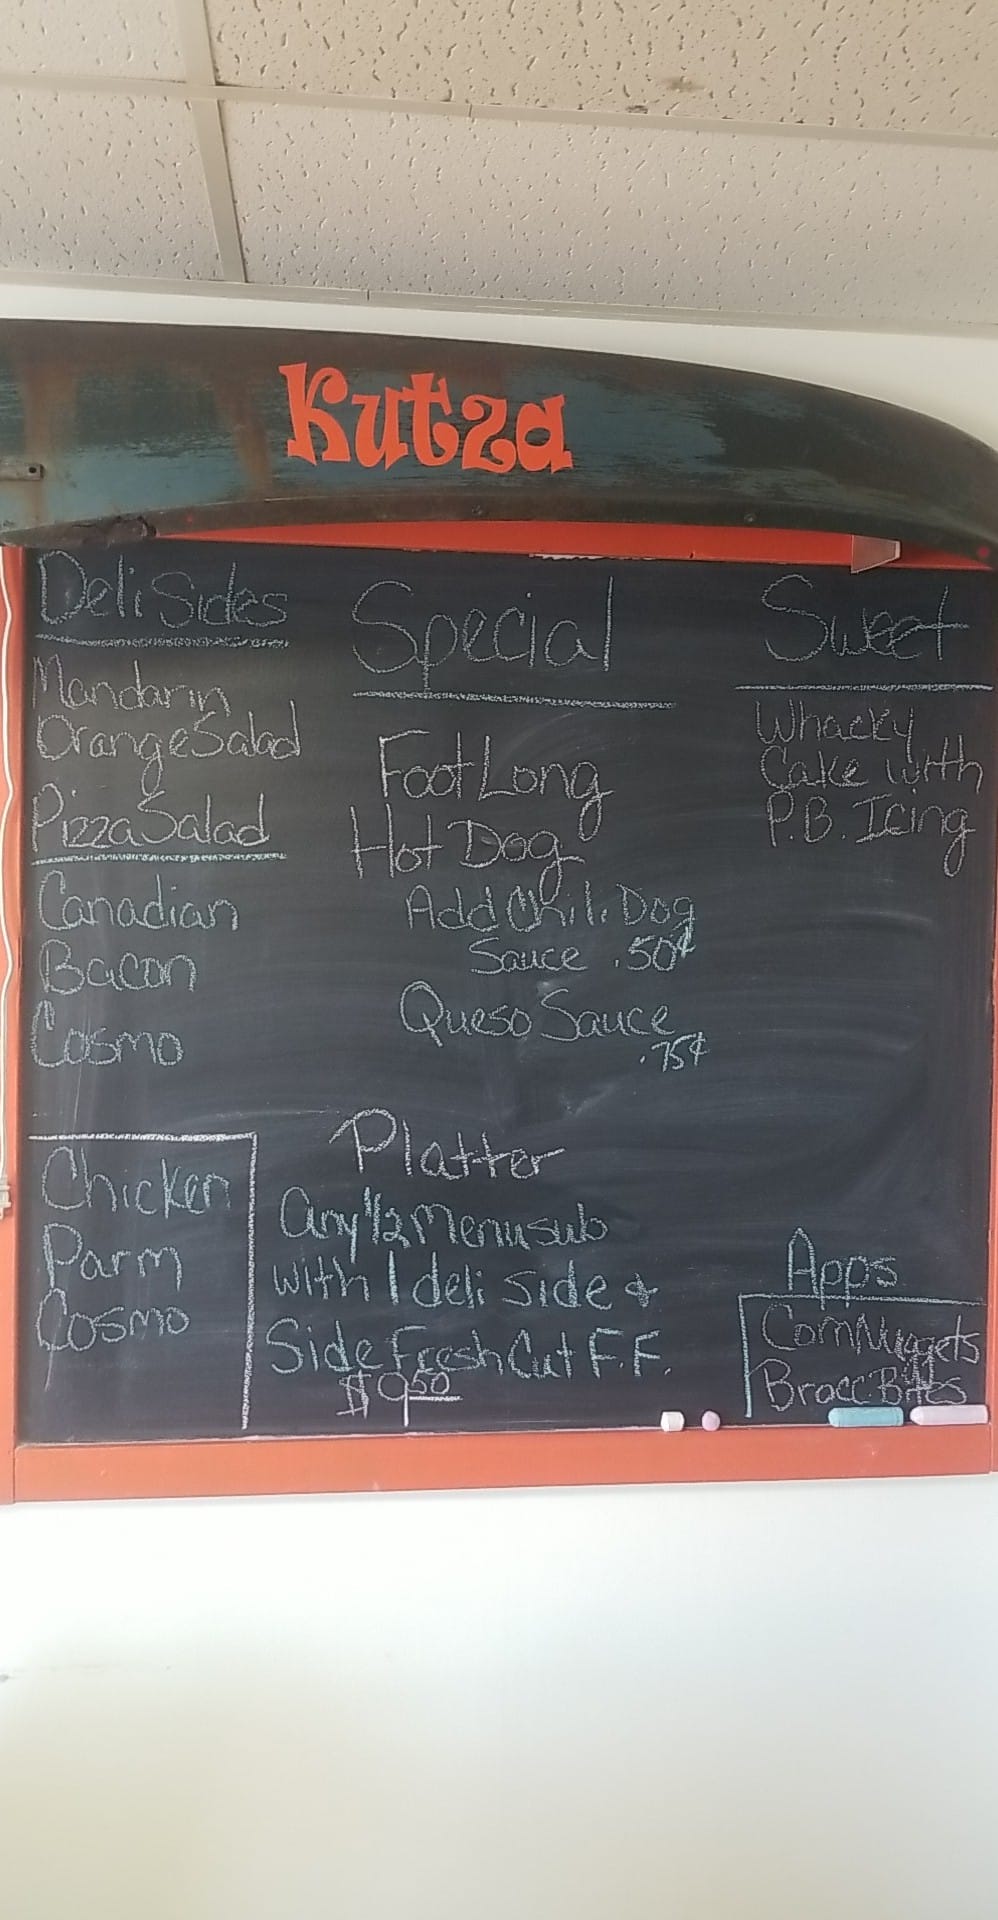 Kutza
Deli Sides
Mandarin
Orange Salad
Pizza Salad
Canadian
Bacon
Cosmo
Chicken
Parm
Cosmo
Special
Foot Long
Hot Dog
Add Chili Dog
Sauce .50¢
Queso Sauce
.75¢
Platter
Any 1/2 Menu sub
with 1 deli side &
Side Fresh Cut F.F.
$9.50
Sweet
Whacky
Cake with
P.B. Icing
Apps
Corn Nuggets
Brocc Bites